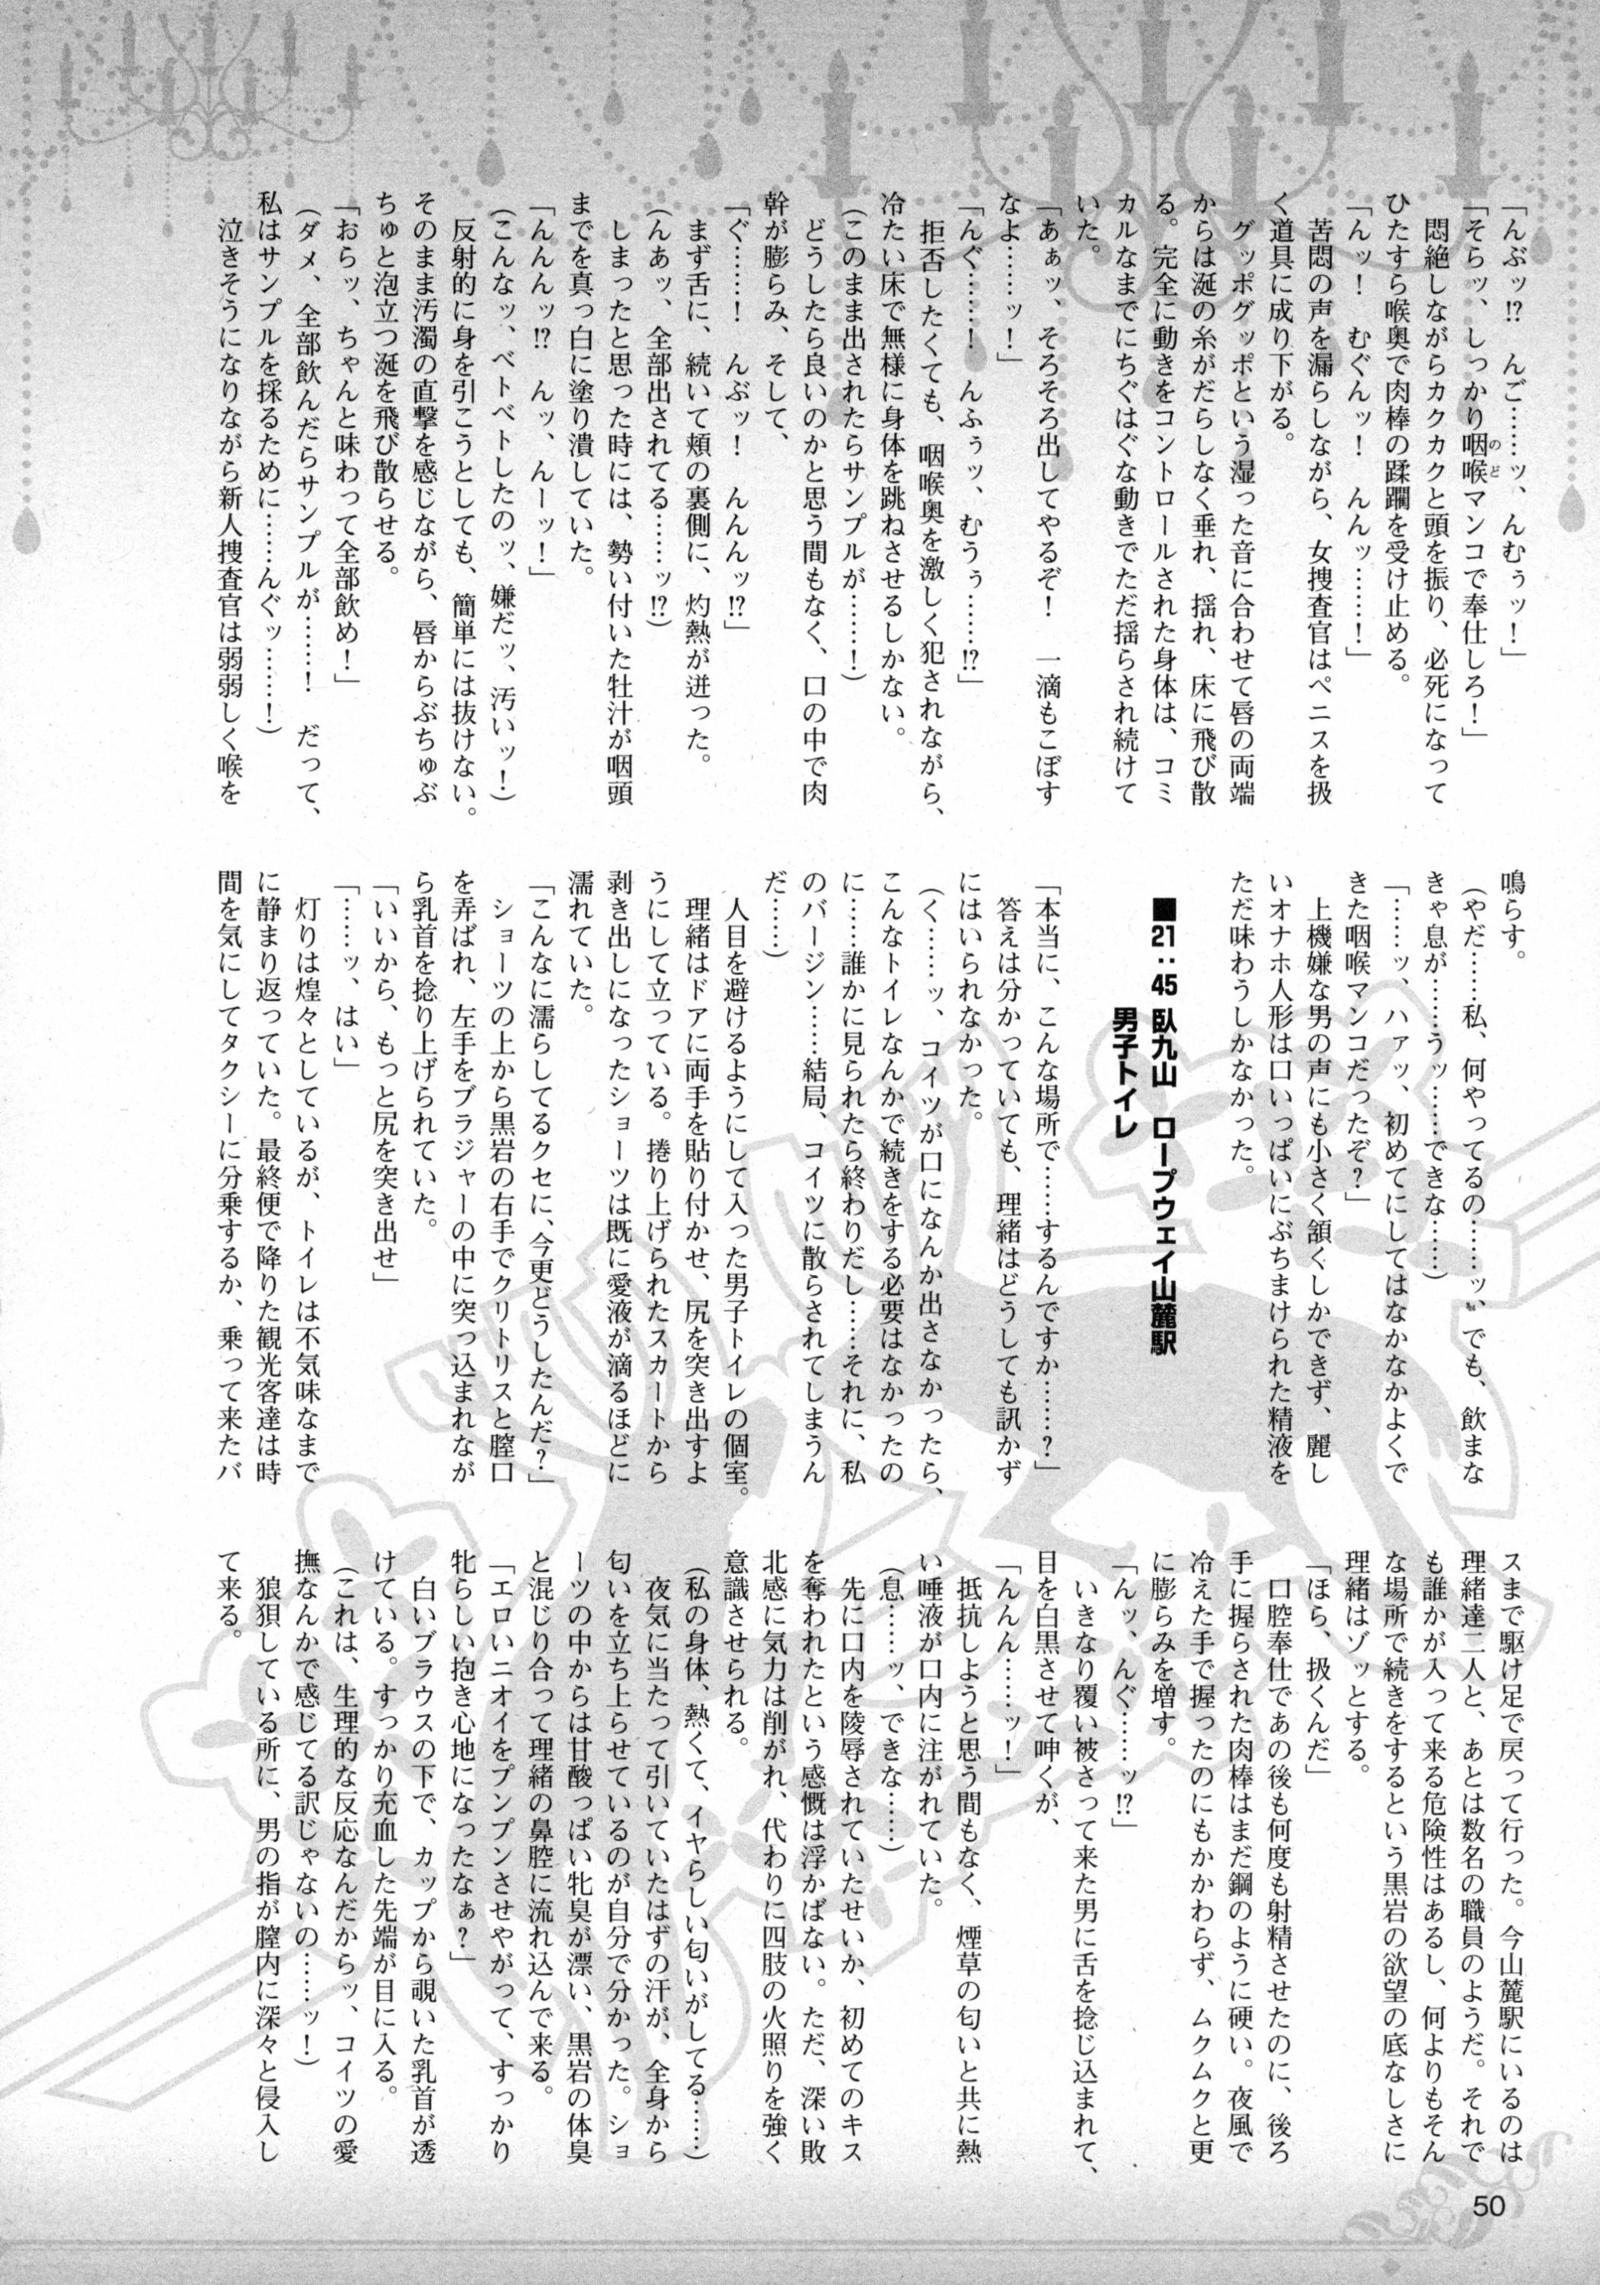 「んぶッ!?　んご……ッ、んむぅッ！」
「そらッ、しっかり咽喉マンコで奉仕しろ！」
のど
悶絶しながらカクカクと頭を振り、必死になって
ひたすら喉奥で肉棒の蹂躙を受け止める。
「んッ！　むぐんッ！　んんッ……！」
苦悶の声を漏らしながら、女捜査官はペニスを扱
く道具に成り下がる。
グッポグッポという湿った音に合わせて唇の両端
からは涎の糸がだらしなく垂れ、揺れ、床に飛び散
る。完全に動きをコントロールされた身体は、コミ
カルなまでにちぐはぐな動きでただ揺らされ続けて
いた。
「あぁッ、そろそろ出してやるぞ！　一滴もこぼす
なよ……ッ！」
「んぐ……！　んふぅッ、むうぅ……!?」
拒否したくても、咽喉奥を激しく犯されながら、
冷たい床で無様に身体を跳ねさせるしかない。
(このまま出されたらサンプルが……！)
どうしたら良いのかと思う間もなく、口の中で肉
幹が膨らみ、そして、
「ぐ……！　んぶッ！　んんんッ!?」
まず舌に、続いて頬の裏側に、灼熱が迸った。
(んあッ、全部出されてる……ッ!?)
しまったと思った時には、勢い付いた牡汁が咽頭
までを真っ白に塗り潰していた。
「んんんッ!?　んッ、んーッ！」
(こんなッ、ベトベトしたのッ、嫌だッ、汚いッ！)
反射的に身を引こうとしても、簡単には抜けない。
そのまま汚濁の直撃を感じながら、唇からぶちゅぶ
ちゅと泡立つ涎を飛び散らせる。
「おらッ、ちゃんと味わって全部飲め！」
(ダメ、全部飲んだらサンプルが……！　だって、
私はサンプルを採るために……んぐッ……！)
泣きそうになりながら新人捜査官は弱弱しく喉を
鳴らす。
(やだ……私、何やってるの……ッ、でも、飲まな
きゃ息が……うッ……できな……)
「……ッ、ハァッ、初めてにしてはなかなかよくで
きた咽喉マンコだったぞ？」
上機嫌な男の声にも小さく頷くしかできず、麗し
いオナホ人形は口いっぱいにぶちまけられた精液を
ただ味わうしかなかった。
■21：45 臥九山　ロープウェイ山麓駅
男子トイレ
「本当に、こんな場所で……するんですか……？」
答えは分かっていても、理緒はどうしても訊かず
にはいられなかった。
(く……ッ、コイツが口になんか出さなかったら、
こんなトイレなんかで続きをする必要はなかったの
に……誰かに見られたら終わりだし……それに、私
のバージン……結局、コイツに散らされてしまうん
だ……)
人目を避けるようにして入った男子トイレの個室。
理緒はドアに両手を貼り付かせ、尻を突き出すよ
うにして立っている。捲り上げられたスカートから
剥き出しになったショーツは既に愛液が滴るほどに
濡れていた。
「こんなに濡らしてるクセに、今更どうしたんだ？」
ショーツの上から黒岩の右手でクリトリスと膣口
を弄ばれ、左手をブラジャーの中に突っ込まれなが
ら乳首を捻り上げられていた。
「いいから、もっと尻を突き出せ」
「……ッ、はい」
灯りは煌々としているが、トイレは不気味なまで
に静まり返っていた。最終便で降りた観光客達は時
間を気にしてタクシーに分乗するか、乗って来たバ
スまで駆け足で戻って行った。今山麓駅にいるのは
理緒達二人と、あとは数名の職員のようだ。それで
も誰かが入って来る危険性はあるし、何よりもそん
な場所で続きをするという黒岩の欲望の底なしさに
理緒はゾッとする。
「ほら、扱くんだ」
口腔奉仕であの後も何度も射精させたのに、後ろ
手に握らされた肉棒はまだ鋼のように硬い。夜風で
冷えた手で握ったのにもかかわらず、ムクムクと更
に膨らみを増す。
「んッ、んぐ……ッ!?」
いきなり覆い被さって来た男に舌を捻じ込まれて、
目を白黒させて呻くが、
「んんん……ッ！」
抵抗しようと思う間もなく、煙草の匂いと共に熱
い唾液が口内に注がれていた。
(息……ッ、できな……)
先に口内を陵辱されていたせいか、初めてのキス
を奪われたという感慨は浮かばない。ただ、深い敗
北感に気力は削がれ、代わりに四肢の火照りを強く
意識させられる。
(私の身体、熱くて、イヤらしい匂いがしてる……)
夜気に当たって引いていたはずの汗が、全身から
匂いを立ち上らせているのが自分で分かった。ショ
ーツの中からは甘酸っぱい牝臭が漂い、黒岩の体臭
と混じり合って理緒の鼻腔に流れ込んで来る。
「エロいニオイをプンプンさせやがって、すっかり
牝らしい抱き心地になったなぁ？」
白いブラウスの下で、カップから覗いた乳首が透
けている。すっかり充血した先端が目に入る。
(これは、生理的な反応なんだからッ、コイツの愛
撫なんかで感じてる訳じゃないの……ッ！)
狼狽している所に、男の指が膣内に深々と侵入し
て来る。
50